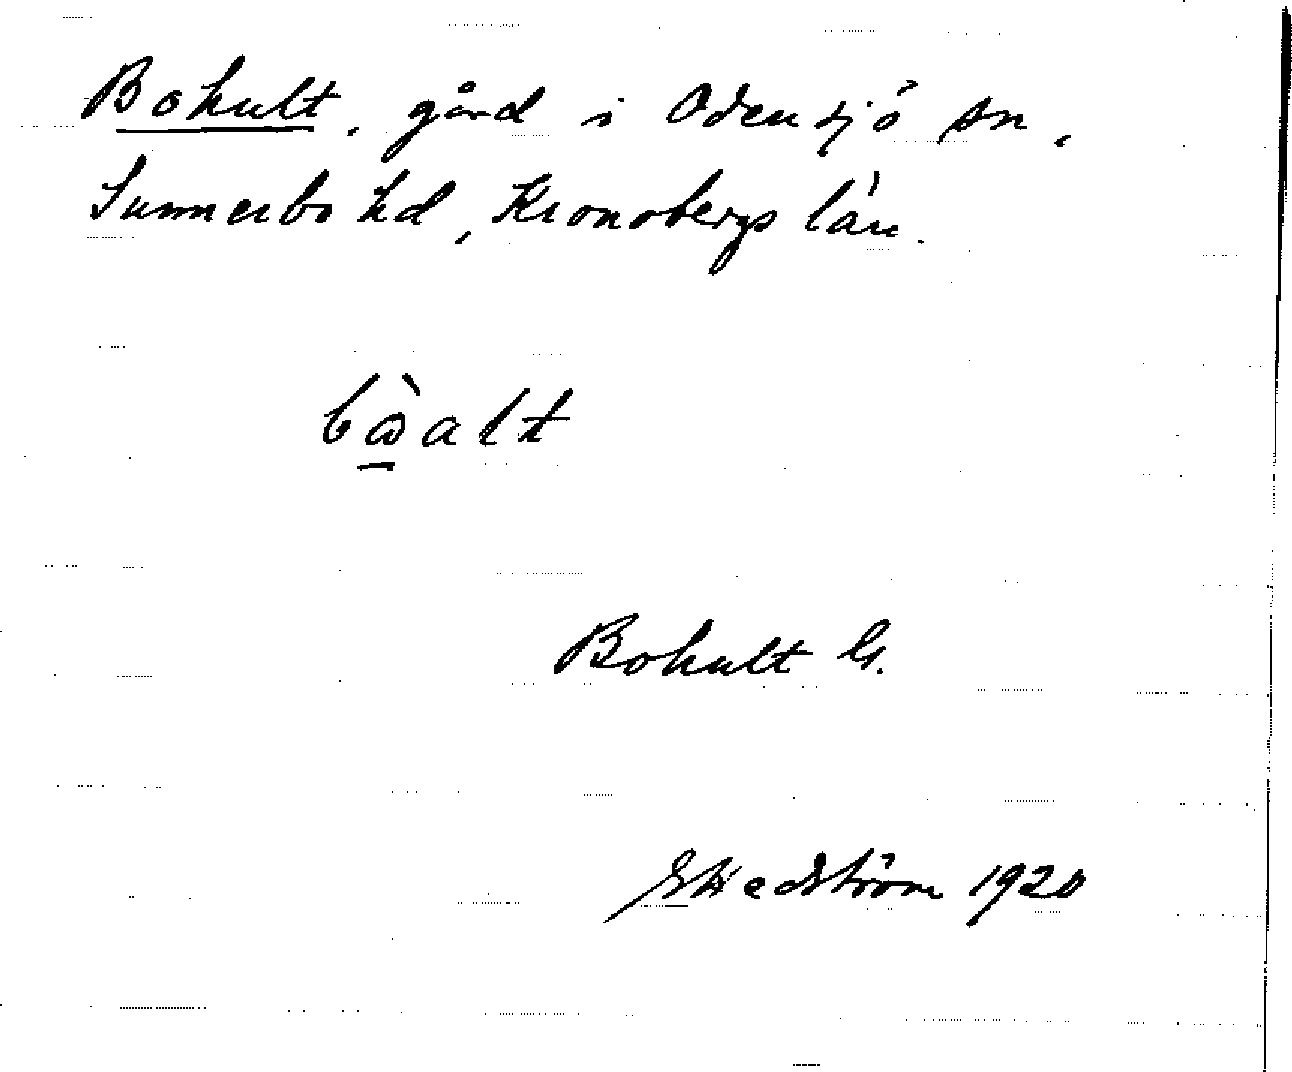 Bohult, gård i Odensjö sn,
Sunnerbo hd, Kronobergs län.
bὼ̲alt
Bohult G.
G Hedström 1920